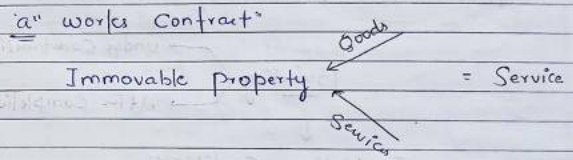 "a" works contract"
Goods
Immovable property = Service
Services